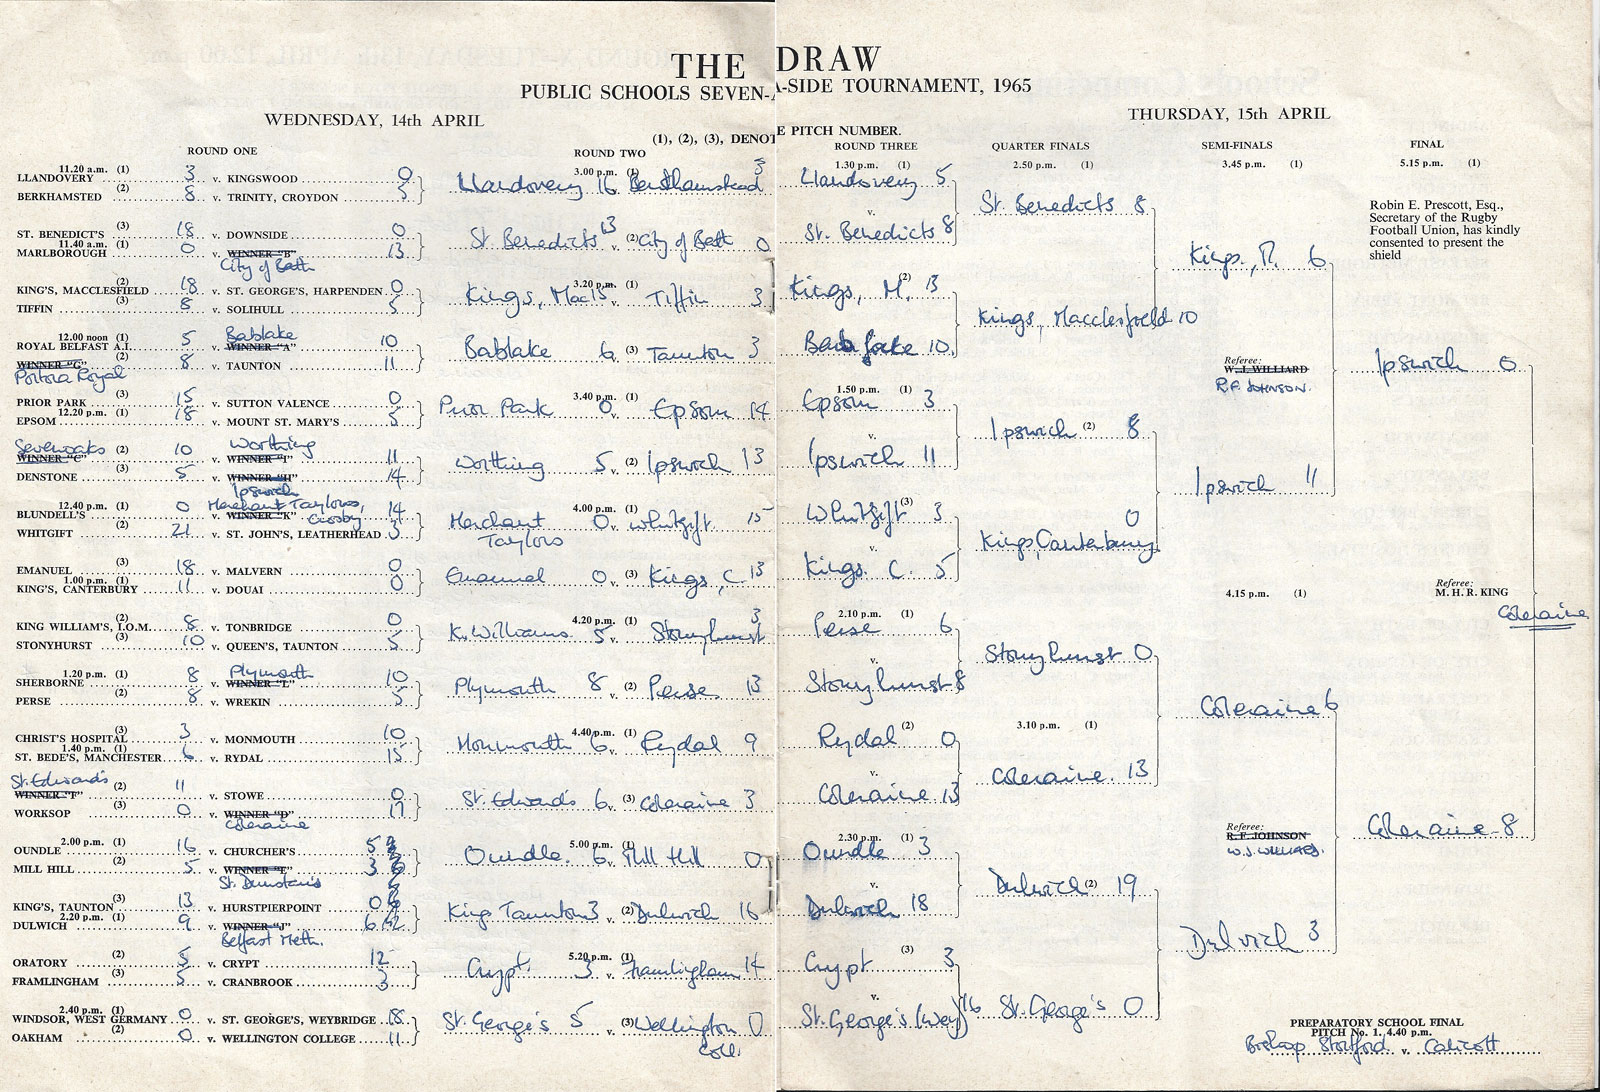 THE DRAW
PUBLIC SCHOOLS SEVEN-A-SIDE TOURNAMENT, 1965
WEDNESDAY, 14th APRIL
THURSDAY, 15th APRIL
(1), (2), (3), DENOTE PITCH NUMBER.
ROUND ONE
11.20 a.m. (1)
LLANDOVERY 3 v. KINGSWOOD 0
(2)
BERKHAMSTED 8 v. TRINITY, CROYDON 5
(3)
ST. BENEDICT'S 18 v. DOWNSIDE 0
11.40 a.m. (1)
MARLBOROUGH 0 v. WINNER "B" 13
City of Bath
(2)
KING'S, MACCLESFIELD 18 v. ST. GEORGE'S, HARPENDEN 0
(3)
TIFFIN 8 v. SOLIHULL 5
12.00 noon (1) Bablake
ROYAL BELFAST A.I. 5 v. WINNER "A" 10
(2)
WINNER "G" 8 v. TAUNTON 11
Portora Royal
(3)
PRIOR PARK 15 v. SUTTON VALENCE 0
12.20 p.m. (1)
EPSOM 18 v. MOUNT ST. MARY'S 5
Sevenoaks (2) Worthing
WINNER "C" 10 v. WINNER "I" 11
(3)
DENSTONE 5 v. WINNER "H" 14
Ipswich
12.40 p.m. (1) Merchant Taylors,
BLUNDELL'S 0 v. WINNER "K" Crosby 14
(2)
WHITGIFT 21 v. ST. JOHN'S, LEATHERHEAD 3
(3)
EMANUEL 18 v. MALVERN 0
1.00 p.m. (1)
KING'S, CANTERBURY 11 v. DOUAI 0
(2)
KING WILLIAM'S, I.O.M. 8 v. TONBRIDGE 0
(3)
STONYHURST 10 v. QUEEN'S, TAUNTON 5
1.20 p.m. (1) Plymouth
SHERBORNE 8 v. WINNER "L" 10
(2)
PERSE 8 v. WREKIN 5
(3)
CHRIST'S HOSPITAL 3 v. MONMOUTH 10
1.40 p.m. (1)
ST. BEDE'S, MANCHESTER 6 v. RYDAL 15
St. Edwards (2)
WINNER "F" 11 v. STOWE 0
(3)
WORKSOP 0 v. WINNER "D" 17
Coleraine
2.00 p.m. (1)
OUNDLE 16 v. CHURCHER'S 5
(2)
MILL HILL 5 v. WINNER "E" 3
St. Dunstan's
(3)
KING'S, TAUNTON 13 v. HURSTPIERPOINT 0
2.20 p.m. (1)
DULWICH 9 v. WINNER "J" 6
Belfast Meth.
(2)
ORATORY 5 v. CRYPT 12
(3)
FRAMLINGHAM 5 v. CRANBROOK 3
2.40 p.m. (1)
WINDSOR, WEST GERMANY 0 v. ST. GEORGE'S, WEYBRIDGE 18
(2)
OAKHAM 0 v. WELLINGTON COLLEGE 11
ROUND TWO
3.00 p.m. (1)
Llandovery 16 Berkhamstead 3
St. Benedicts 13 v. (2) City of Bath 0
3.20 p.m. (1)
Kings, Mac 15 v. Tiffin 3
Bablake 6 v. (3) Taunton 3
3.40 p.m. (1)
Prior Park 0 v. Epsom 14
Worthing 5 v. (2) Ipswich 13
4.00 p.m. (1)
Merchant 0 v. Whitgift 15
Taylors
Emanuel 0 v. (3) Kings, C 13
4.20 p.m. (1)
K. Williams 5 v. Stonyhurst 3
Plymouth 8 v. (2) Perse 13
4.40 p.m. (1)
Monmouth 6 v. Rydal 9
St. Edwards 6 v. (3) Coleraine 3
5.00 p.m. (1)
Oundle 6 v. Mill Hill 0
King Taunton 3 v. (2) Dulwich 16
5.20 p.m. (1)
Crypt 3 v. Framlingham 14
St. George's 5 v. (3) Wellington 0
Coll.
ROUND THREE
1.30 p.m. (1)
Llandovery 5
v.
St. Benedicts 8
(2)
Kings, M. 13
Bablake 10
1.50 p.m. (1)
Epsom 3
v.
Ipswich 11
(3)
Whitgift 3
v.
Kings. C. 5
2.10 p.m. (1)
Perse 6
v.
Stonyhurst 8
(2)
Rydal 0
v.
Coleraine 13
2.30 p.m. (1)
Oundle 3
v.
Dulwich 18
(3)
Crypt 3
v.
St. George's (Wey) 16
QUARTER FINALS
2.50 p.m. (1)
St. Benedicts 8
Kings, Macclesfield 10
Ipswich (2) 8
0
Kings, Canterbury
Stonyhurst 0
3.10 p.m. (1)
Coleraine 13
Dulwich (2) 19
St. George's 0
SEMI-FINALS
3.45 p.m. (1)
Kings., M. 6
Referee:
W. J. WILLIARD
R.F. JOHNSON.
Ipswich 11
4.15 p.m. (1)
Coleraine 6
Referee:
R. F. JOHNSON
Dulwich 3
FINAL
5.15 p.m. (1)
Robin E. Prescott, Esq.,
Secretary of the Rugby
Football Union, has kindly
consented to present the
shield
Ipswich 0
Referee:
M. H. R. KING
Coleraine
Coleraine 8
PREPARATORY SCHOOL FINAL
PITCH No. 1, 4.40 p.m.
Bishop Stortford v. Calicott